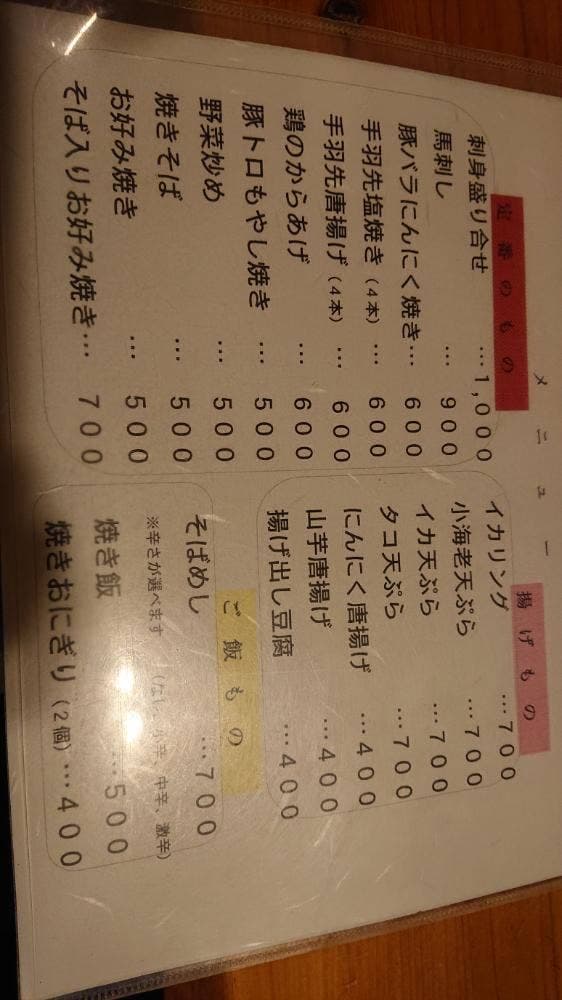 メニュー
定番のもの
刺身盛り合せ …1,000
馬刺し … 900
豚バラにんにく焼き… 600
手羽先塩焼き（4本）… 600
手羽先唐揚げ（4本）… 600
鶏のからあげ … 600
豚トロもやし焼き … 500
野菜炒め … 500
焼きそば … 500
お好み焼き … 500
そば入りお好み焼き… 700
揚げもの
イカリング …700
小海老天ぷら …700
イカ天ぷら …700
タコ天ぷら …700
にんにく唐揚げ …400
山芋唐揚げ …400
揚げ出し豆腐 …400
ご飯もの
そばめし …700
※辛さが選べます （なし、小辛、中辛、激辛）
焼き飯 …500
焼きおにぎり（2個）…400